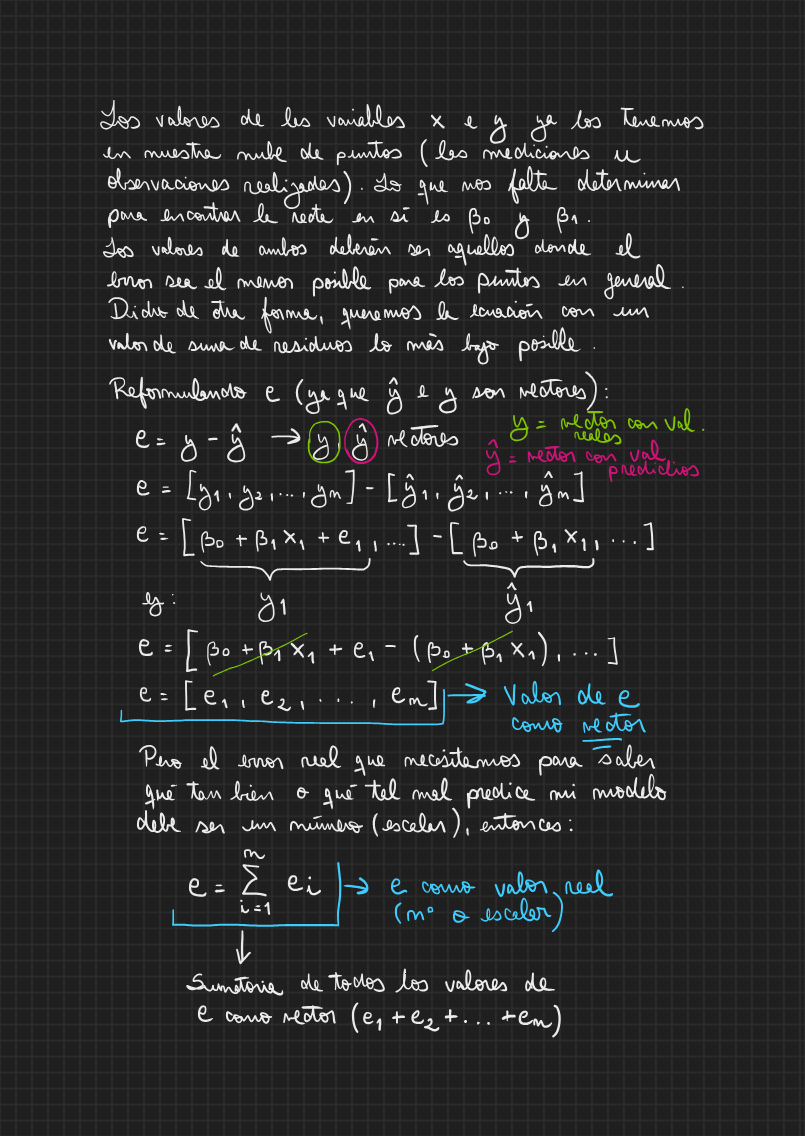 Los valores de las variables x e y ya los tenemos
en nuestra nube de puntos (las mediciones u
observaciones realizadas). Lo que nos falta determinar
para encontrar la recta en sí es β0 y β1.
Los valores de ambos deberán ser aquellos donde el
error sea el menor posible para los puntos en general.
Dicho de otra forma, queremos la ecuación con un
valor de suma de residuos lo más bajo posible.
Reformulando e (ya que ŷ e y son vectores):
e = y - ŷ → y, ŷ vectores
y = vector con val. reales
ŷ = vector con val predichos
e = [y1, y2, ..., yn] - [ŷ1, ŷ2, ..., ŷn]
e = [β0 + β1 x1 + e1, ...] - [β0 + β1 x1, ...]
ej: y1 ŷ1
e = [β0 + β1 x1 + e1 - (β0 + β1 x1), ...]
e = [e1, e2, ..., en] → Valor de e
como vector
Pero el error real que necesitamos para saber
qué tan bien o qué tal mal predice mi modelo
debe ser un número (escalar), entonces:
n
e = ∑ ei → e como valor real
i=1 (n° o escalar)
↓
Sumatoria de todos los valores de
e como vector (e1 + e2 + ... + en)